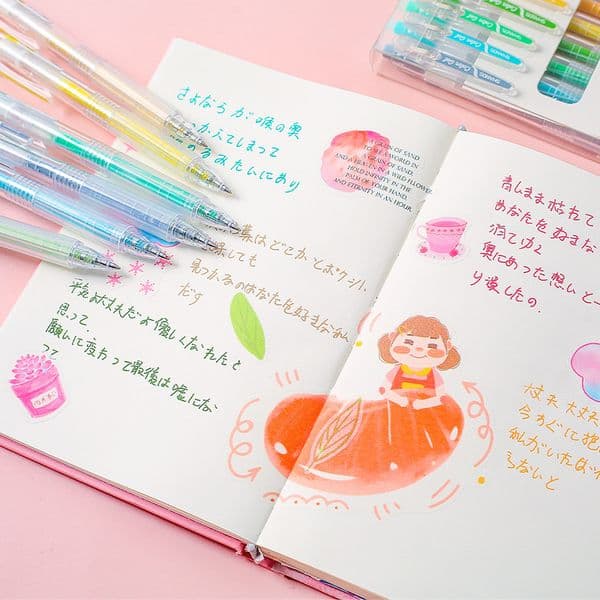 さよならが喉の奥
っかえてしまって
るみたいにあり
GRAIN OF SAND
TO SEE A WORLD IN
A GRAIN OF SAND.
AND A HEAVEN IN A WILD FLOWER
HOLD INFINITY IN THE
PALM OF YOUR HAND,
AND ETERNITY IN AN HOUR.
はどこかとポケット、
しても
見つかるのはあなたを好きな
大丈夫だよ優しくなれたと
思って.
願いに変わって最後は嘘にな
って
青いまま枯れて
あなたを好きな
消てゆく
奥にあった想いと一
り浸したの.
大丈夫
今すぐに抱
私がいれば
らないと
Color Gel
Color Gel
Color Gel